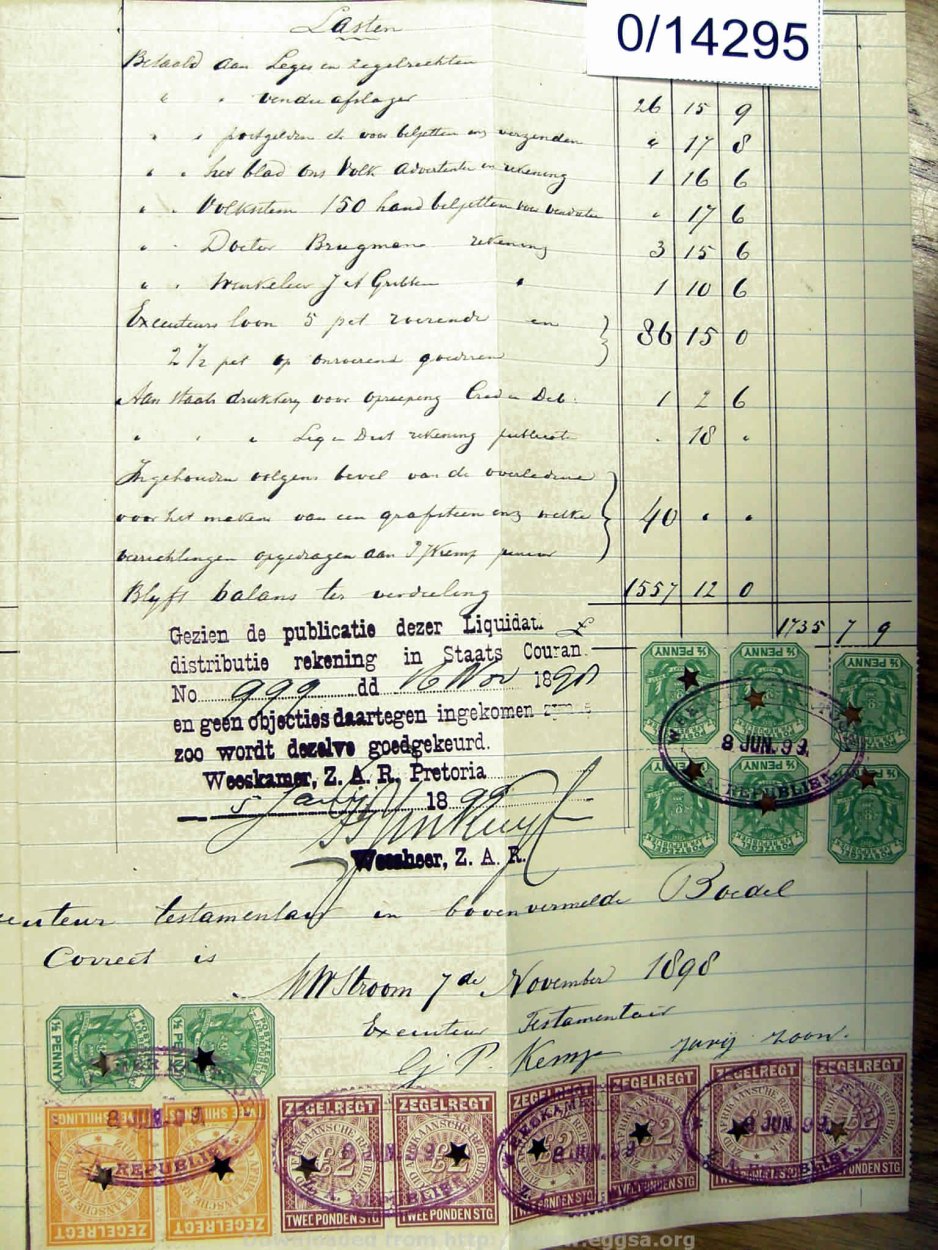 0/14295
Lasten
Betaald aan Leges en zegelrechten
" " vendu afslager 26 15 9
" " postgelden voor biljetten en verzenden " 17 8
" " het blad Ons Volk advertentie en rekening 1 16 6
" " Volkstem 150 hand biljetten voor vendutie " 17 6
" " Docter Brugmans rekening 3 15 6
" " Winkelier J A Gribben " 1 10 6
Executeurs loon 5 pct roerende en
2 1/2 pct op onroerend goederen 86 15 0
Aan Staats drukkery voor oproeping Cred en Deb: 1 2 6
" " " Liq en Dist rekening publicatie " 18 "
Ingehouden volgens bevel van de overledene
voor het maken van een grafsteen enz welke
verrichtingen opgedragen aan Kemp senior 40 " "
Blyft balans ter verdeeling 1557 12 0
£ 1735 7 9
Gezien de publicatie dezer Liquidati
distributie rekening in Staats Couran
No 999 dd 16 Nov 1898
en geen objecties daartegen ingekomen zynde
zoo wordt dezelve goedgekeurd.
Weeskamer, Z. A. R., Pretoria
5 Januarij 1899
Weesheer, Z. A. R.
½ PENNY ½ PENNY ½ PENNY
8 JUN. 99
REPUBLIEK
ecuteur testamentair in bovenvermelde Boedel
Correct is
MWStroom 7de November 1898
Executeur Testamentair
G. P. Kemp Jurij zoon.
½ PENNY ½ PENNY
8 JUN. 99
REPUBLIEK
ZEGELREGT ZEGELREGT ZEGELREGT ZEGELREGT ZEGELREGT ZEGELREGT
£2 £2 £2 £2 £2 £2
8 JUN. 99 8 JUN. 99 8 JUN. 99
TWEE PONDEN STG TWEE PONDEN STG TWEE PONDEN STG TWEE PONDEN STG TWEE PONDEN STG TWEE PONDEN STG
ZEGELREGT ZEGELREGT
Downloaded from http://www.eggsa.org